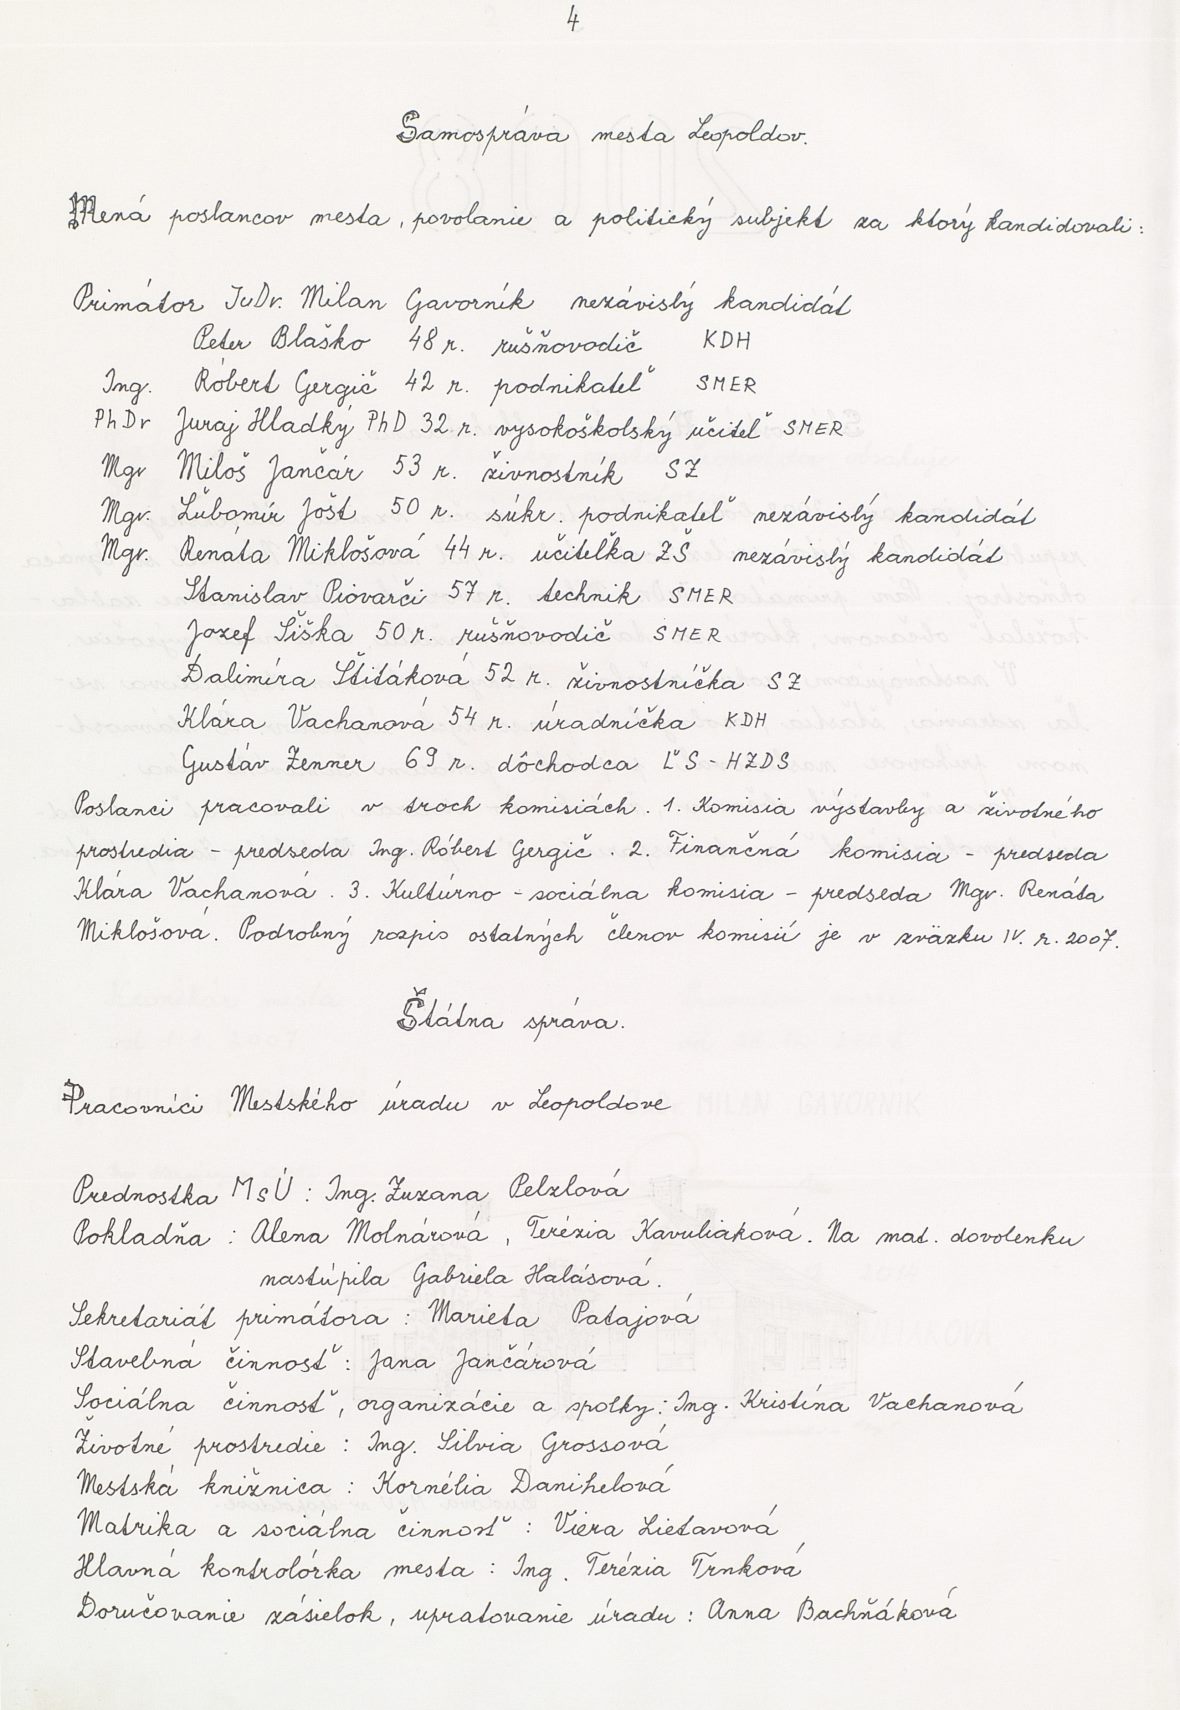 4
Samospráva mesta Leopoldov.
Mená poslancov mesta, povolanie a politický subjekt za ktorý kandidovali:
Primátor JuDr. Milan Gavorník nezávislý kandidát
Peter Blaško 48 r. rušňovodič KDH
Ing. Róbert Gergič 42 r. podnikateľ SMER
PhDr Juraj Hladký PhD 32 r. vysokoškolský učiteľ SMER
Mgr Miloš Jančár 53 r. živnostník SZ
Mgr. Ľubomír Jošt 50 r. súkr. podnikateľ nezávislý kandidát
Mgr. Renáta Miklošová 44 r. učiteľka ZŠ nezávislý kandidát
Stanislav Piovarči 57 r. technik SMER
Jozef Šiška 50 r. rušňovodič SMER
Dalimíra Štitáková 52 r. živnostníčka SZ
Klára Vachanová 54 r. úradníčka KDH
Gustáv Zenner 69 r. dôchodca ĽS - HZDS
Poslanci pracovali v troch komisiách. 1. Komisia výstavby a životného
prostredia - predseda Ing. Róbert Gergič. 2. Finančná komisia - predseda
Klára Vachanová. 3. Kultúrno - sociálna komisia - predseda Mgr. Renáta
Miklošová. Podrobný rozpis ostatných členov komisií je v zväzku IV. r. 2007.
Štátna správa.
Pracovníci Mestského úradu v Leopoldove
Prednostka MsÚ: Ing. Zuzana Pelzlová
Pokladňa: Alena Molnárová, Terézia Kavuliaková. Na mat. dovolenku
nastúpila Gabriela Halásová.
Sekretariát primátora: Marieta Patajová
Stavebná činnosť: Jana Jančárová
Sociálna činnosť, organizácie a spolky: Ing. Kristína Vachanová
Životné prostredie: Ing. Silvia Grossová
Mestská knižnica: Kornélia Danihelová
Matrika a sociálna činnosť: Viera Lietavová
Hlavná kontrolórka mesta: Ing. Terézia Trnková
Doručovanie zásielok, upratovanie úradu: Anna Bachňáková